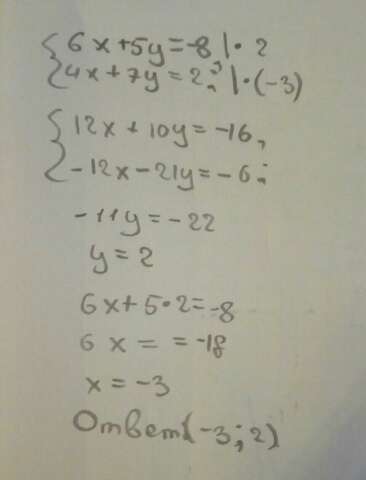 {6x+5y=-8 |·2
4x+7y=2; |·(-3)
{12x+10y=-16,
-12x-21y=-6;
-11y=-22
y=2
6x+5·2=-8
6x= =-18
x=-3
Ответ(-3;2)